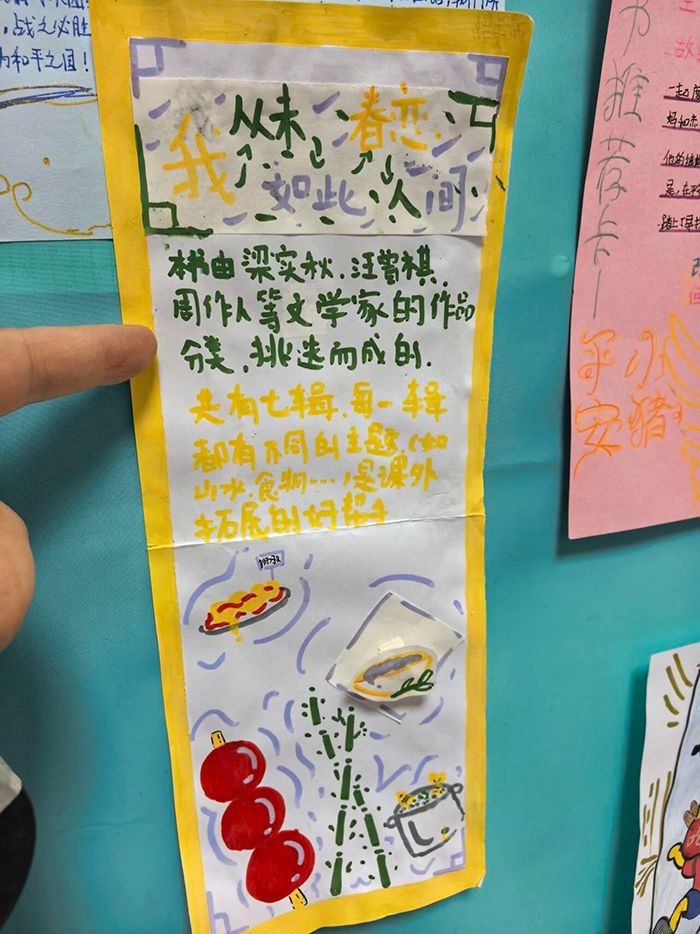 ,战之必胜
为和平之国!
我从未眷恋
如此人间
本书由梁实秋.汪曾祺.
周作人等文学家的作品
分类,挑选而成的.
共有七辑,每一辑
都有不同的主题,(如
山水.食物…)是课外
拓展的好帮手
书推荐卡—
平安小猪